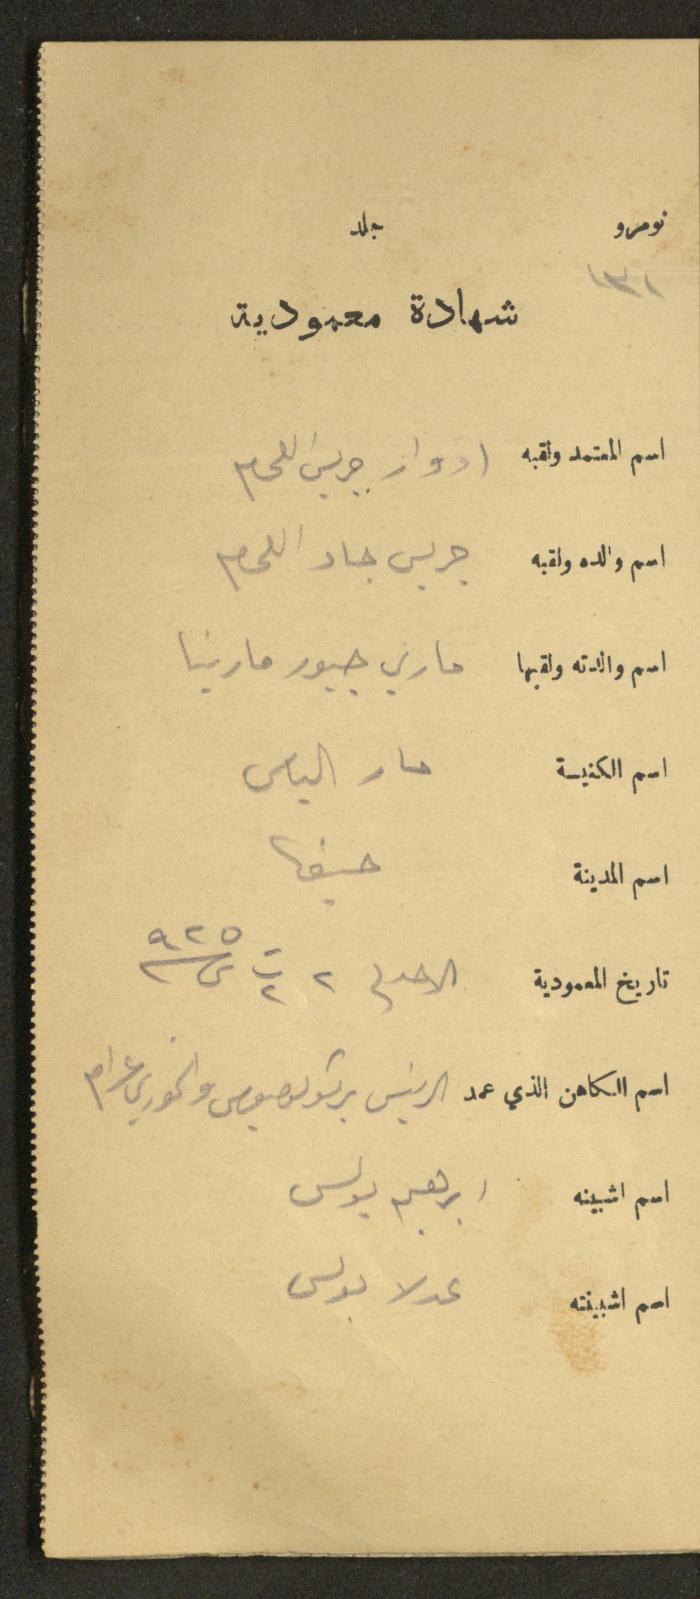 نومرو جلد
١٣١
شهادة معمودية
اسم المعتمد ولقبه ادوار جريس اللحام
اسم والده ولقبه جريس جاد اللحام
اسم والدته ولقبها ماري جبور مارينا
اسم الكنيسة مار الياس
اسم المدينة حيفا
تاريخ المعمودية الاحد ٢ ت٢ ٩٢٥
اسم الكاهن الذي عمد الريس برثولوميوس والخوري
اسم اشبينه ابرهيم بولس
اسم اشبينته عدلا بولس